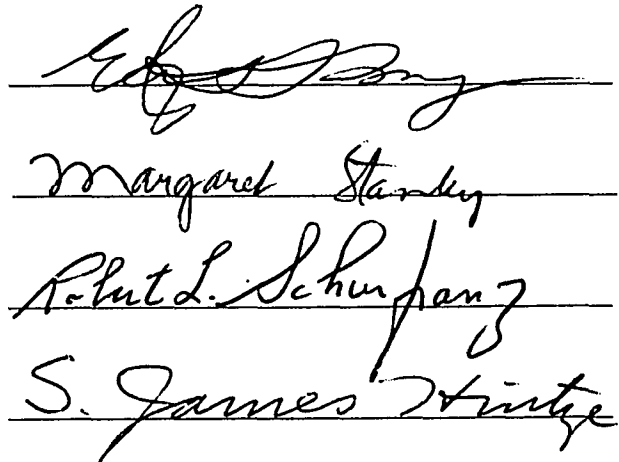 Margaret Stanley
Robert L. Schurfranz
S. James Hintze